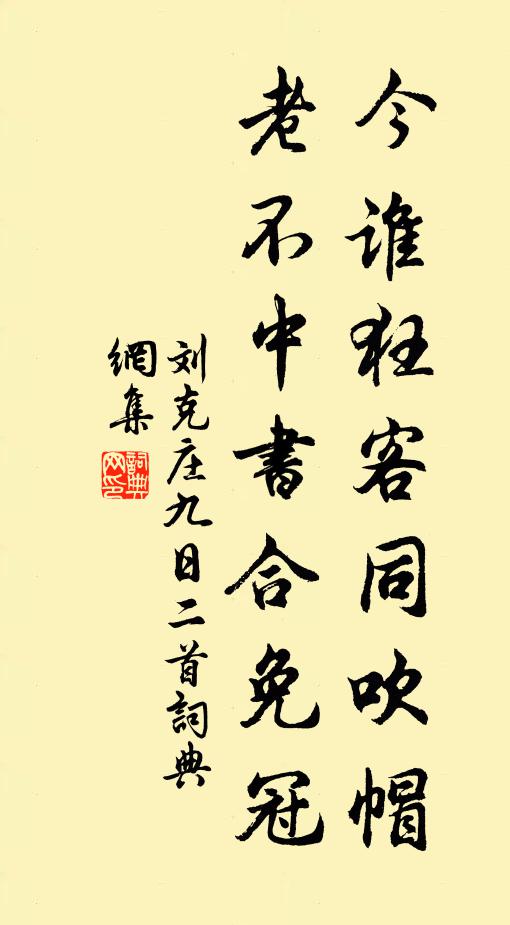 今誰狂客同吹帽
老不中書合免冠
刘克庄九日二首詞典
網集
詞典
网印